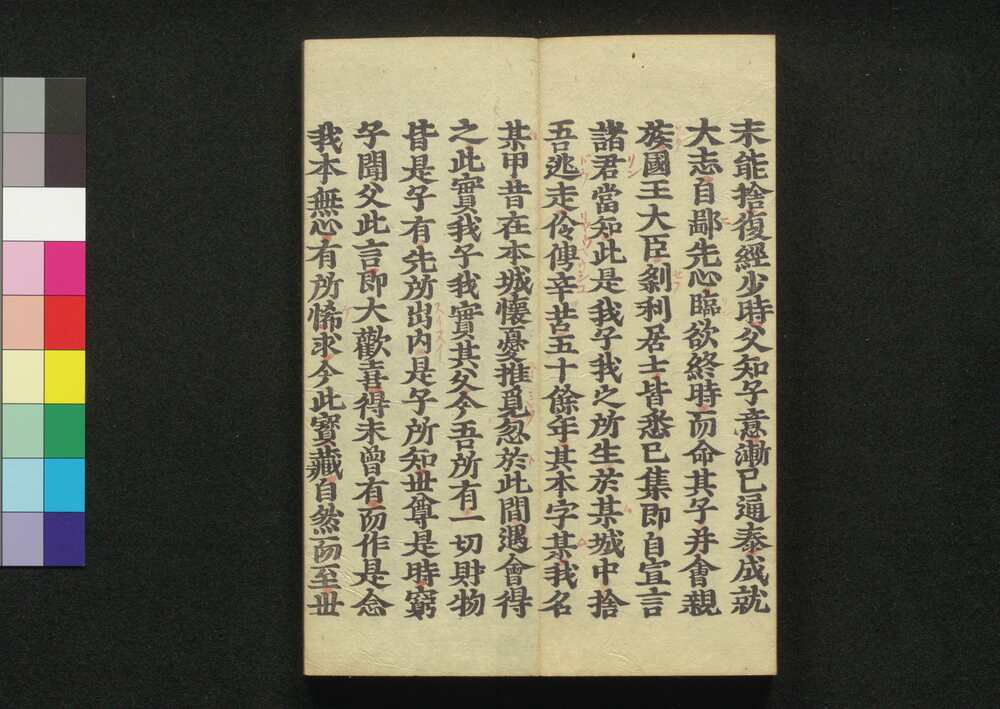 未能捨復經少時父知子意漸已通泰成就
大志自鄙先心臨欲終時而命其子并會親
族國王大臣剎利居士皆悉已集即自宣言
諸君當知此是我子我之所生於某城中捨
吾逃走伶俜辛苦五十餘年其本字某我名
某甲昔在本城懷憂推覓忽於此間遇會得
之此實我子我實其父今吾所有一切財物
皆是子有先所出内是子所知世尊是時窮
子聞父此言即大歡喜得未曾有而作是念
我本無心有所悕求今此寳藏自然而至世